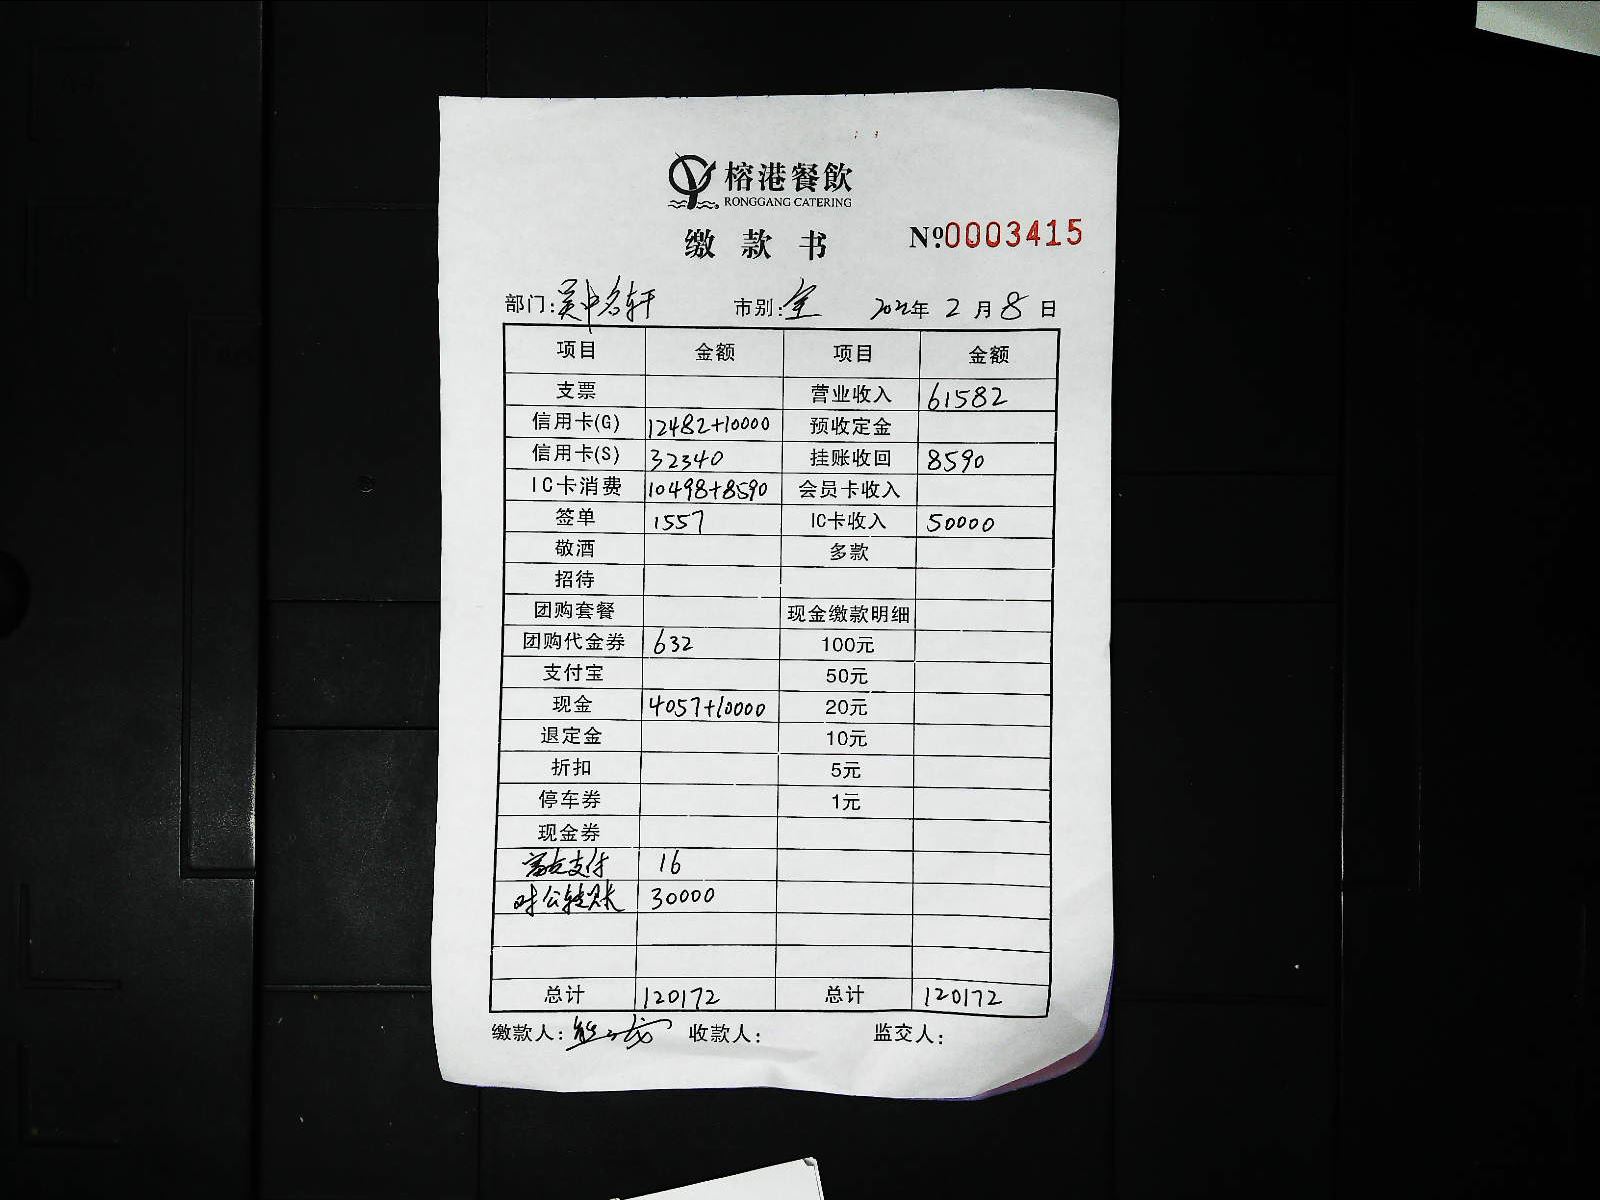 榕港餐飲
RONGGANG CATERING
缴款书
Nº:0003415
部门:吴中名轩 市别:全 2022年2月8日
项目 金额 项目 金额
支票 营业收入 61582
信用卡(G) 12482+10000 预收定金
信用卡(S) 32340 挂账收回 8590
IC卡消费 10498+8590 会员卡收入
签单 1557 IC卡收入 50000
敬酒 多款
招待
团购套餐 现金缴款明细
团购代金券 632 100元
支付宝 50元
现金 4057+10000 20元
退定金 10元
折扣 5元
停车券 1元
现金券
支付 16
对公转账 30000
总计 120172 总计 120172
缴款人: 收款人: 监交人: